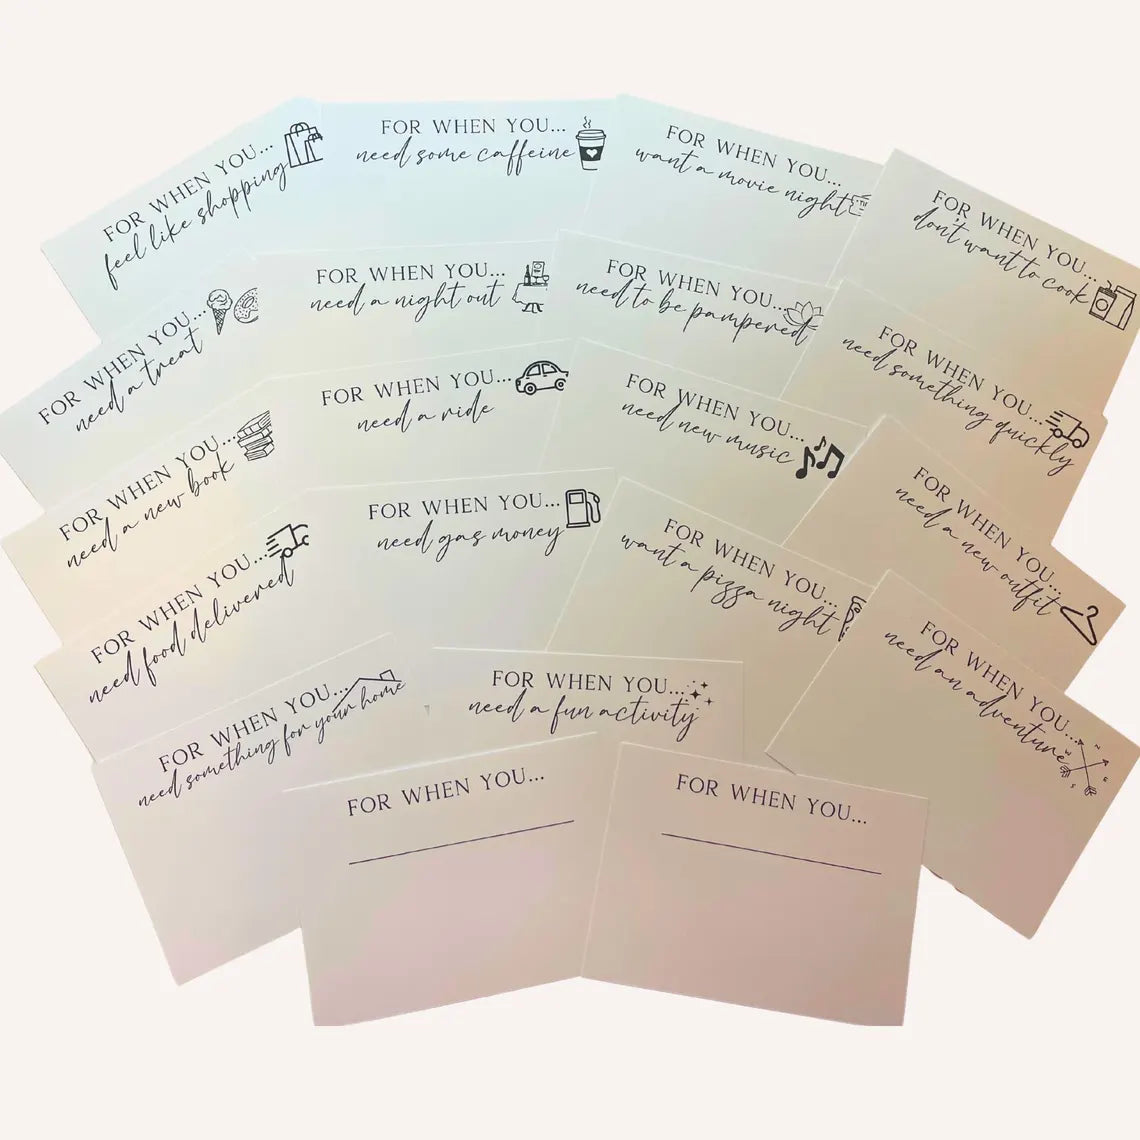 FOR WHEN YOU...
feel like shopping
FOR WHEN YOU...
need some caffeine
FOR WHEN YOU...
want a movie night
FOR WHEN YOU...
don't want to cook
FOR WHEN YOU...
need a treat
FOR WHEN YOU...
need a night out
FOR WHEN YOU...
need to be pampered
FOR WHEN YOU...
need something quickly
FOR WHEN YOU...
need a new book
FOR WHEN YOU...
need a ride
FOR WHEN YOU...
need new music
FOR WHEN YOU...
need a new outfit
FOR WHEN YOU...
need food delivered
FOR WHEN YOU...
need gas money
FOR WHEN YOU...
want a pizza night
FOR WHEN YOU...
need an adventure
FOR WHEN YOU...
need something for your home
FOR WHEN YOU...
need a fun activity
FOR WHEN YOU...
FOR WHEN YOU...